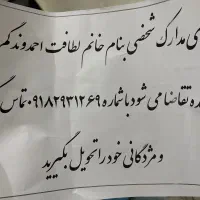 ی مدارک شخصی بنام خانم لطافت احمدوند گم
ده تقاضا می شود با شماره ۰۹۱۸۲۹۳۱۲۶۹ تماس
و مژدگانی خود را تحویل بگیرید